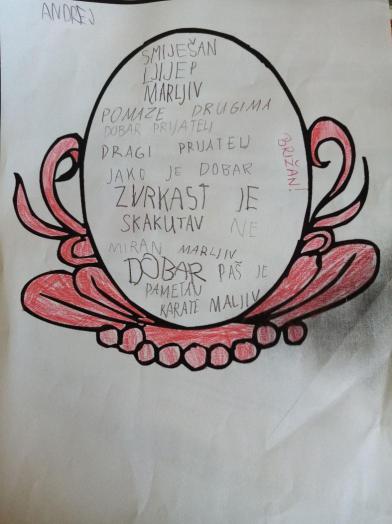 ANDREJ
SMIJEŠAN
LIJEP
MARLJIV
POMAZE DRUGIMA
DOBAR PRIJATELJ
DRAGI PRIJATELJ
JAKO JE DOBAR
BRIŽAN!
ZVRKAST JE
SKAKUTAV NE
MIRAN MARLJIV
DOBAR PAŠ JE
PAMETAN
KARATE MALJIV